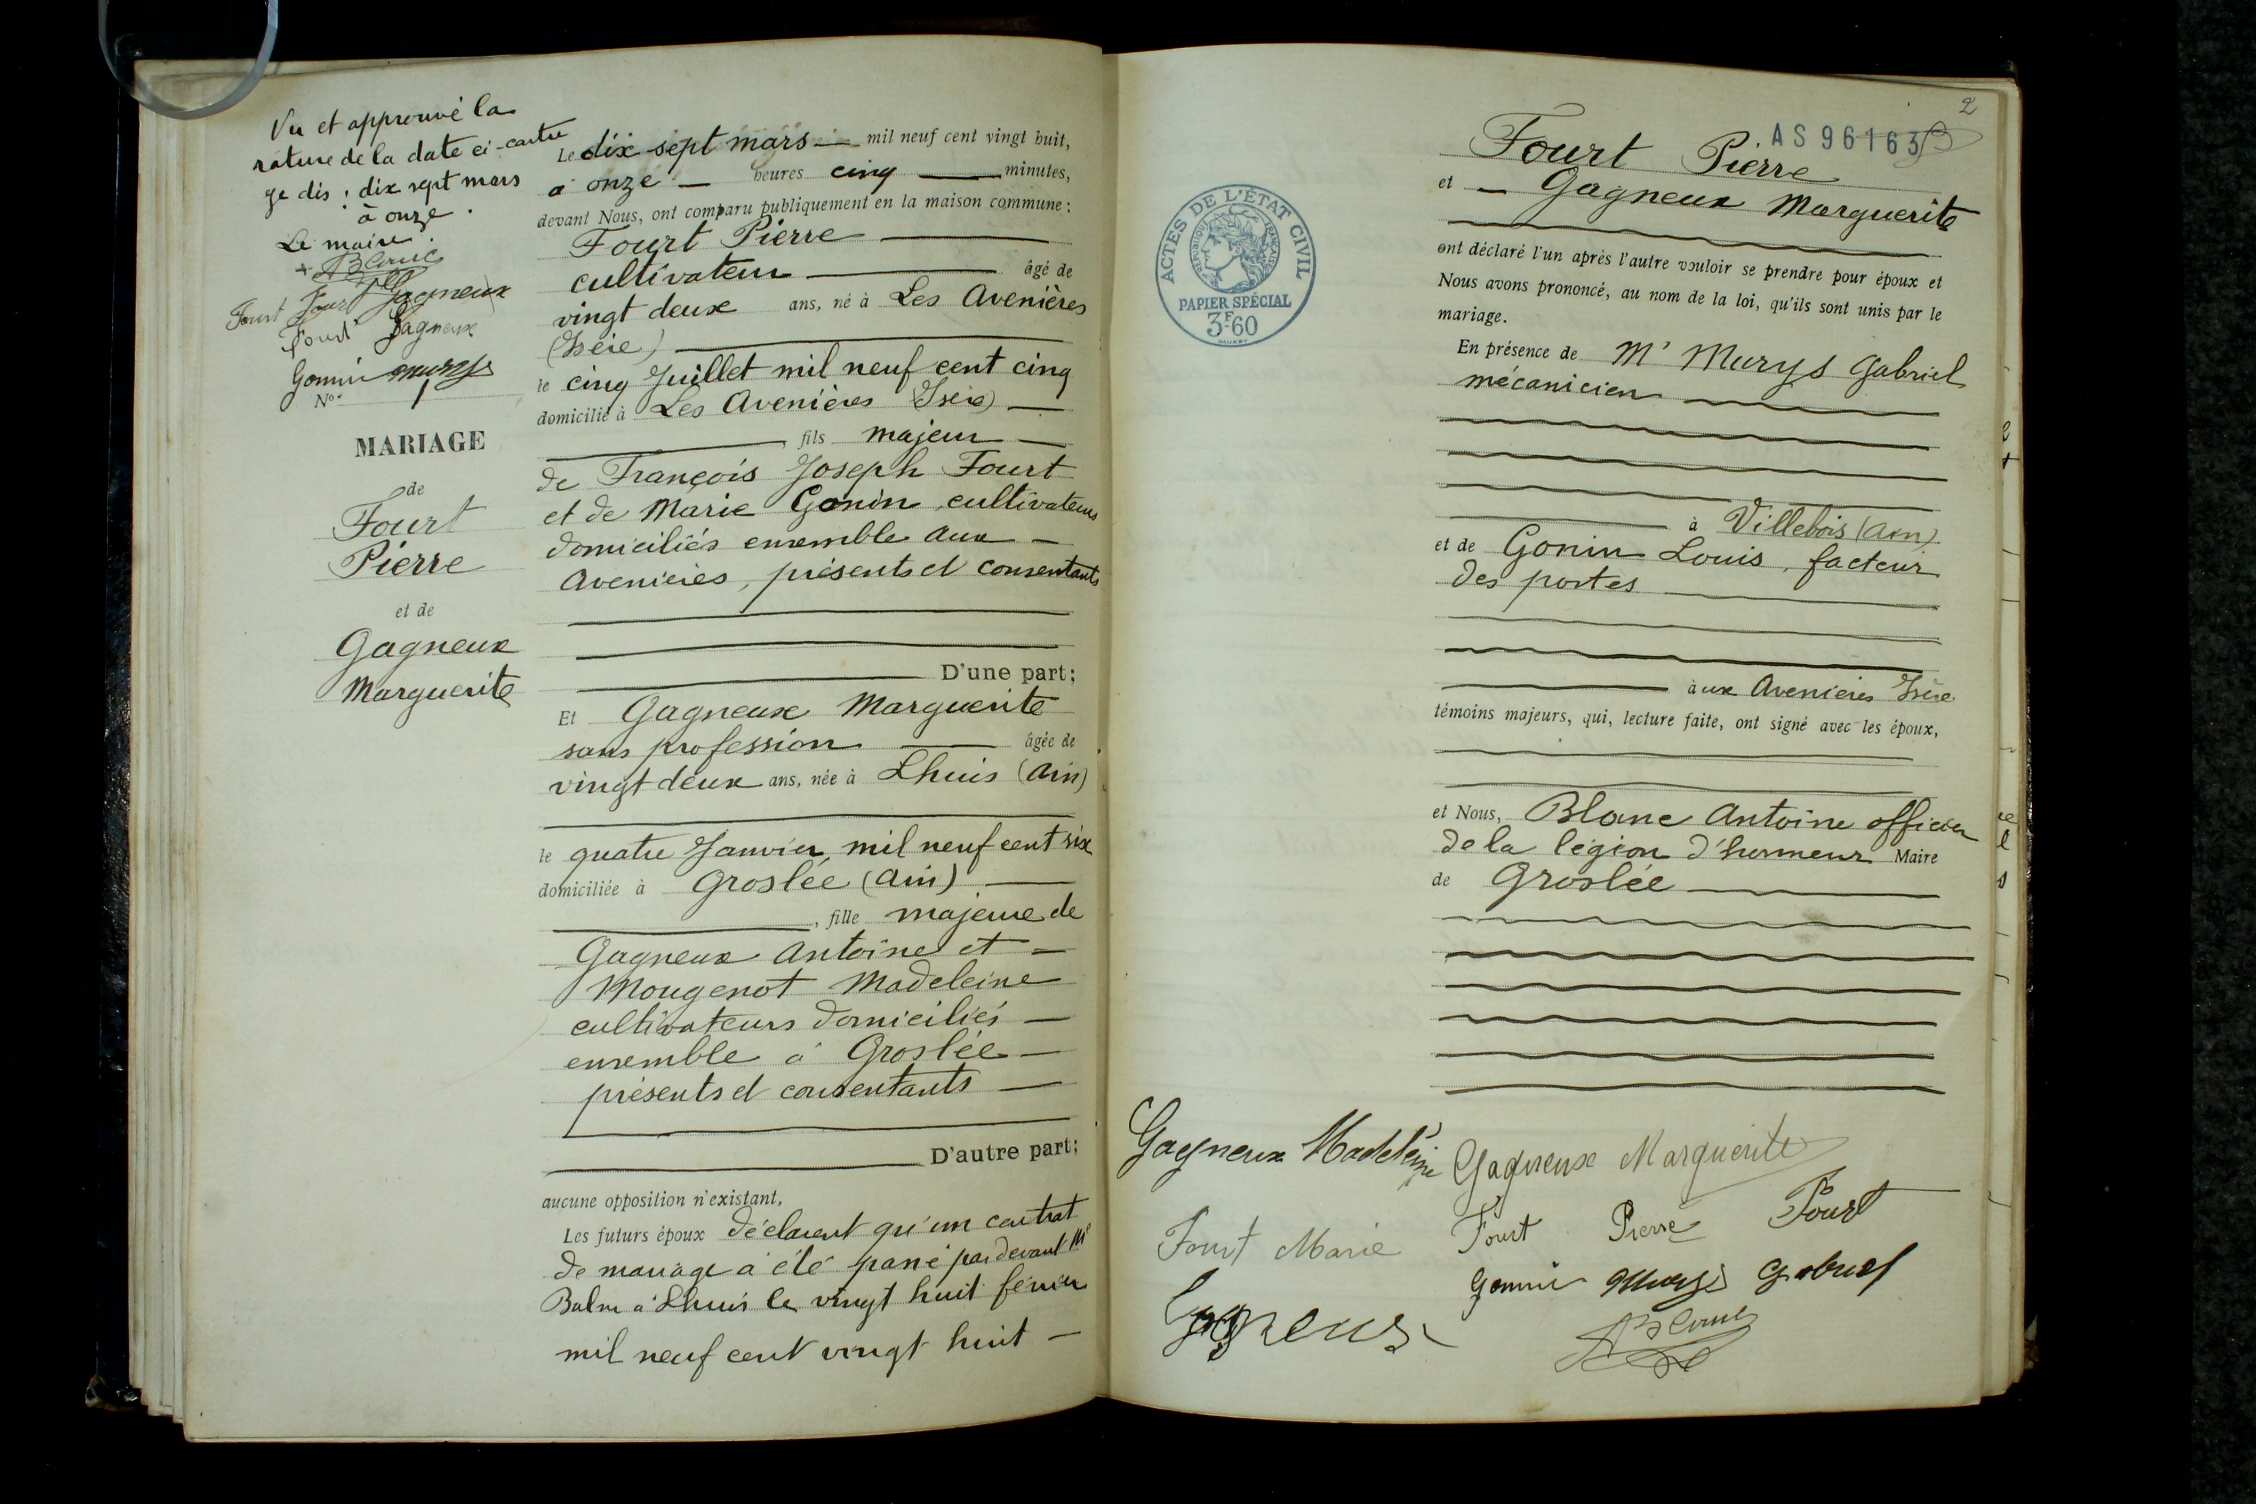 Vu et approuvé la
rature de la date ci-contre
ge dis : dix sept mars
à onze.
Le maire.
ABlanc
Fourt Fourt Gagneux
Fourt Gagneux
Gonnin Murys
No. 1
MARIAGE
de
Fourt
Pierre
et de
Gagneux
Marguerite
Le dix sept mars — mil neuf cent vingt huit,
à onze — heures cinq — minutes,
devant Nous, ont comparu publiquement en la maison commune :
Fourt Pierre
cultivateur âgé de
vingt deux ans, né à Les Avenières
(Isère)
le cinq Juillet mil neuf cent cinq
domicilié à Les Avenières (Isère)
, fils majeur
de François Joseph Fourt
et de Marie Gonin, cultivateurs
domiciliés ensemble aux
Avenières, présents et consentants
D'une part;
Et Gagneux Marguerite
sans profession âgée de
vingt deux ans, née à Lhuis (Ain)
le quatre Janvier mil neuf cent six
domiciliée à Groslée (Ain)
, fille majeure de
Gagneux Antoine et
Mougenot Madeleine
cultivateurs domiciliés
ensemble à Groslée
présents et consentants
D'autre part;
aucune opposition n'existant,
Les futurs époux déclarent qu'un contrat
de mariage a été passé par devant Me
Balme à Lhuis le vingt huit février
mil neuf cent vingt huit —
2
AS 96163
Fourt Pierre
et — Gagneux Marguerite
ont déclaré l'un après l'autre vouloir se prendre pour époux et
Nous avons prononcé, au nom de la loi, qu'ils sont unis par le
mariage.
En présence de Mr Murys Gabriel
mécanicien
à Villebois (Ain)
et de Gonin Louis, facteur
des postes
aux Avenières Isère
témoins majeurs, qui, lecture faite, ont signé avec les époux,
et Nous, Blanc Antoine officier
de la légion d'honneur Maire
de Groslée
ACTES DE L'ÉTAT CIVIL
RÉPUBLIQUE FRANÇAISE
PAPIER SPÉCIAL
3F60
Gagneux Madeleine Gagneux Marguerite
Fourt Marie Fourt Pierre Fourt
Gonnin Murys Gabriel
Gagneux
ABlanc